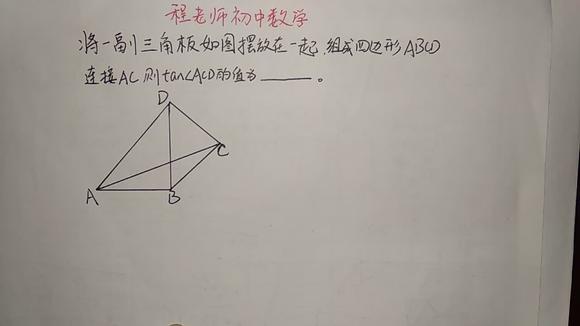 程老师初中数学
将一副三角板如图摆放在一起,组成四边形ABCD
连接AC,则tan∠ACD的值为______。
D
C
A
B